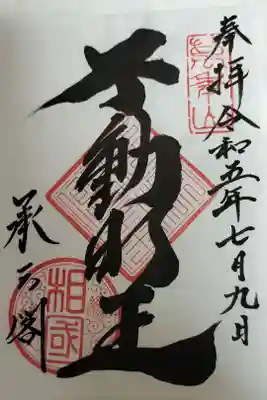 奉拝 令和五年七月九日
不動明王
承天閣
相国